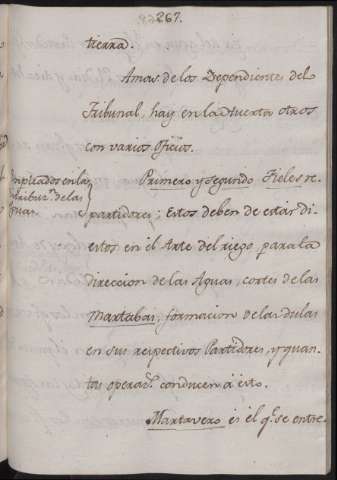 267.
tierra.
Amas. de los Dependientes del
Tribunal, hay en la Huerta otros
con varios Oficios.
Empleados en la
distribuz.n de las
Aguas.
Primero y segundo Fieles re-
partidores; Estos deben de estár di-
estros en el Arte del riego para la
direccion de las Aguas, cortes de las
Martabas, formacion de las dulas
en sus respectivos Partidores, y quan-
tas operac.s conducen á esto.
Martavero es el q.e se entre-